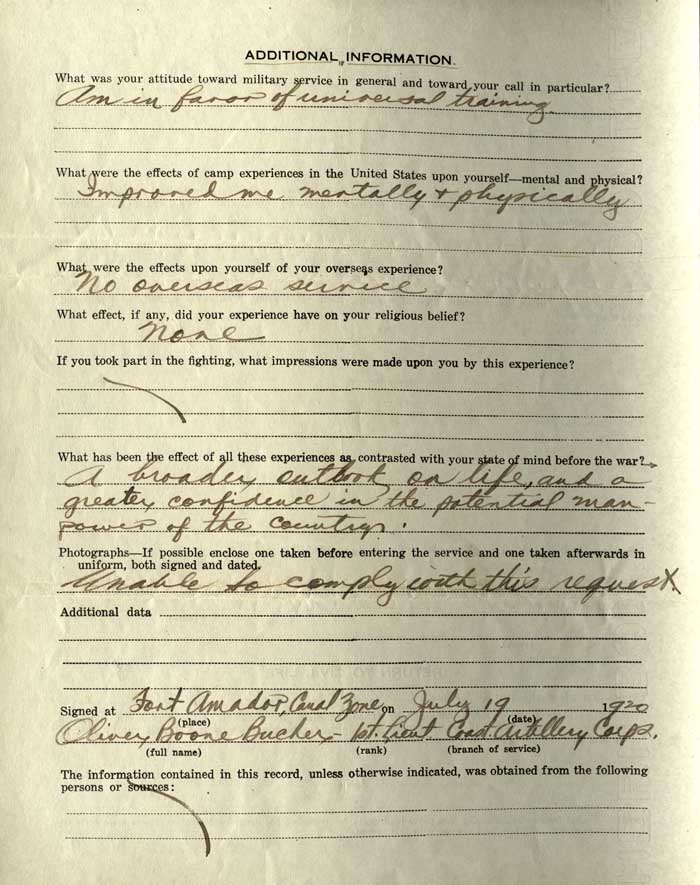 ADDITIONAL INFORMATION.
What was your attitude toward military service in general and toward your call in particular?
Am in favor of universal training
What were the effects of camp experiences in the United States upon yourself—mental and physical?
Improved me mentally & physically
What were the effects upon yourself of your overseas experience?
No overseas service
What effect, if any, did your experience have on your religious belief?
None
If you took part in the fighting, what impressions were made upon you by this experience?
What has been the effect of all these experiences as contrasted with your state of mind before the war?
A broader outlook on life, and a
greater confidence in the potential man-
power of the country.
Photographs—If possible enclose one taken before entering the service and one taken afterwards in
uniform, both signed and dated.
Unable to comply with this request.
Additional data
Signed at Fort Amador, Canal Zone on July 19 1920
(place) (date)
Oliver Boone Bucher - 1st. Lieut. Coast Artillery Corps.
(full name) (rank) (branch of service)
The information contained in this record, unless otherwise indicated, was obtained from the following
persons or sources: